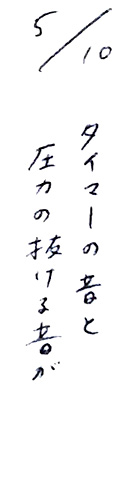 5/10
タイマーの音と
圧力の抜ける音が